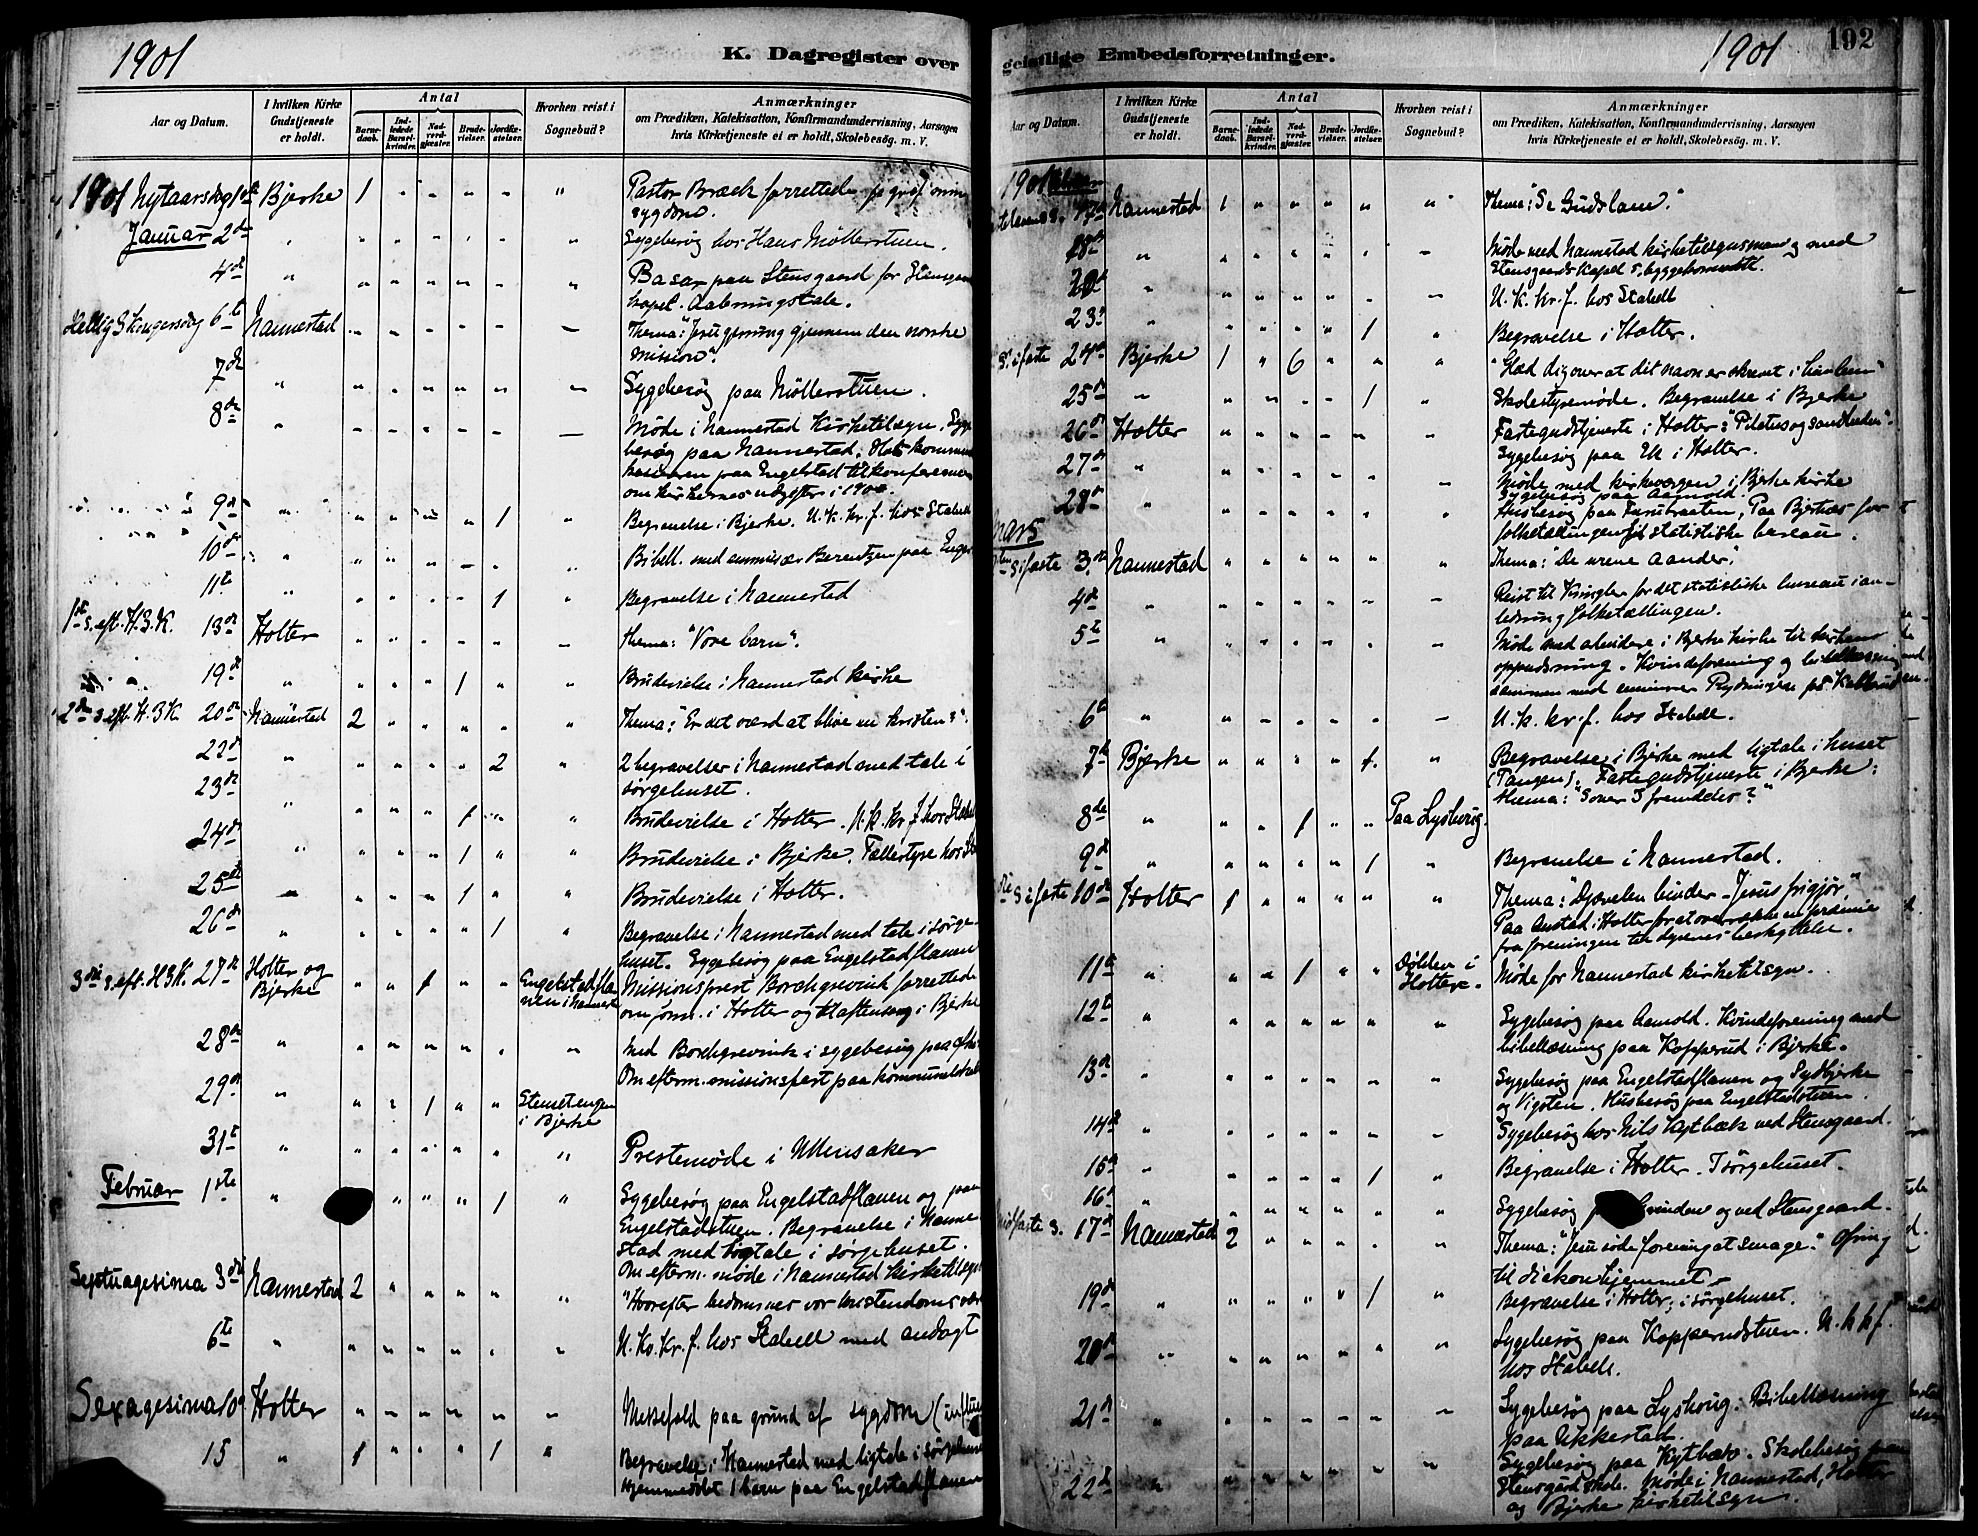 1901
K. Dagregister over
Aar og Datum.
I hvilken Kirke Gudstjeneste er holdt.
Antal
Barnedaab.
Indledede Barselkvinder.
Nadverdgjæster.
Brudevielser.
Jordfæstelser.
Hvorhen reist i Sognebud?
Anmærkninger
om Prædiken, Katekisation, Konfirmandundervisning, Aarsagen
hvis Kirketjeneste ei er holdt, Skolebesög. m. V.
1901 Nytaarsdag 1ste Bjerke 1 " " " " " Pastor Bræck forrettede p. gr. af min
sygdom.
Januar 2de " " " " " " " Sygebesøg hos Hans Möllerstuen.
4de " " " " " " " Basar paa Stensgaard for
kapel. Aabningstale.
Hellig 3 Kongersdag 6te Nannestad " " " " " " Thema: "Jesu gjerning gjennem den norske
mission".
7de " " " " " " " Sygebesøg paa Möllerstuen.
8de " " " " " " " Møde i Nannestad Kirketilsyn.
besøg paa Nannestad;
paa Engelstad til konference
om kirkernes udgifter i 1900.
9de " " " " " 1 " Begravelse i Bjerke. U. k. kr. f. hos Stabell
10de " " " " " " " Bibell. med emissær Berentzen paa
11te " " " " " 1 " Begravelse i Nannestad
1ste s. eft. H.3.K. 13de Holter " " " " " " Thema: "Vore barn".
19de " " " " 1 " " Brudevielse i Nannestad kirke
2den s. eft. H.3.K. 20de Nannestad 2 " " " " " Thema: "Er det værd at blive en kristen?".
22de " " " " " 2 " 2 begravelser i Nannestad med tale i
sørgehuset.
23de " " " " 1 " " Brudevielse i Holter. U. k. kr. f. hos
24de " " " " 1 " " Brudevielse i Bjerke.
25de " " " " 1 " " Brudevielse i Holter.
26de " " " " " 1 " Begravelse i Nannestad med tale i sørge-
huset. Sygebesøg paa Engelstadflauen
3die s. eft. H3K. 27de Holter og Bjerke " " 1 " " Engelstadflauen i Missionsprest Borchgrevink forrettede
om form. i Holter og til aftensang i Bjerke
28de " " " " " " " Med Borchgrevink i sygebesøg paa
Om efterm. missionsfest paa
29de " " " 1 " " Stensetengen
i Bjerke
31te " " " " " " " Prestemøde i Ullensaker
Februar 1ste " " " " 1 " Sygebesøg paa Engelstadflauen og paa
Engelstadstuen. Begravelse i Nanne-
stad med ligtale i sørgehuset.
Om efterm. møde i Nannestad kirketilsyn
Septuagesima 3die Nannestad 2 " " " " " "Hvorefter bedømmes vor kristendoms
6te " " " " " " " U. k. kr. f. hos Stabell med andagt
Sexagesima 10 Holter " " " " " " Messefald paa grund af sygdom
15 " 1 " " " 1 " Begravelse i Nannestad med ligtale i
Hjemmedøbt 1 barn paa Engelstadflauen
geistlige Embedsforretninger.
1901
192
Aar og Datum.
I hvilken Kirke Gudstjeneste er holdt.
Antal
Barnedaab.
Indledede Barselkvinder.
Nadverdgjæster.
Brudevielser.
Jordfæstelser.
Hvorhen reist i Sognebud?
Anmærkninger
om Prædiken, Katekisation, Konfirmandundervisning, Aarsagen
hvis Kirketjeneste ei er holdt, Skolebesög. m. V.
1901
17de Nannestad 1 " " " " " Thema: "Se Guds lam."
18de " " " " " " " Møde med Nannestad kirketilsynsmænd og med
Stensgaards kapel s. byggekomité.
20de " " " " " " " U. k. kr. f. hos Stabell
23de " " " " " 1 " Begravelse i Holter.
s. i faste 24de Bjerke 1 " 6 " " " "Glæd dig over at dit navn er skrevet i himlen"
25de " " " " " 1 " Skolestyremøde. Begravelse i Bjerke
26de Holter " " " " " " Fastegudstjeneste i Holter: "Pilatus og sandheden".
Sygebesøg paa Ek i Holter.
27de " " " " " " " Møde med kirkevergen i Bjerke kirke
Sygebesøg paa Aamold.
28de " " " " " " " Husbesøg paa Furubraaten, Paa Bjerkes for
folketællingen til statistiske bureau.
Mars
s i faste 3die Nannestad " " " " " " Thema: "De urene aander".
4de " " " " " " " Reist til Kringler for det statistiske bureau i an-
ledning folketællingen.
5te " " " " " " " Møde med arbeidere i Bjerke kirke til kirkens
oppudsning. Kvindeforening og bibellæsning
sammen med emissær Rydningen paa
6te " " " " " " " U. k. kr. f. hos Stabell.
7de Bjerke " " " " 1 " Begravelse i Bjerke med ligtale i huset
(Tangen); Fastegudstjeneste i Bjerke:
Thema: "Sover I fremdeles?"
8de " " " 1 " " Paa Lyshoug.
9de " " " " " 1 " Begravelse i Nannestad.
s i faste 10de Holter 1 " " " " " Thema: "Djævelen binder - Jesus frigjør."
Paa Austad i Holter for at overrække en præmie
fra foreningen til dyrenes beskyttelse.
11te " " " 1 " " Dølden i
Holter. Møde for Nannestad kirketilsyn.
12te " " " " " " " Sygebesøg paa Aamold. Kvindeforening med
bibellæsning paa Kopperud i Bjerke.
13de " " " " " " " Sygebesøg paa Engelstadflauen og Sydbjerke
og Vigsten. Husbesøg paa Engelstadstuen.
14de " " " " " " " Sygebesøg hos Nils Kytbæk ved Stensgaard.
15de " " " " " 1 " Begravelse i Holter. I sørgehuset.
16de " " " " " " " Sygebesøg og ved Stensgaard.
Midfaste s. 17de Nannestad 2 " " " " " Thema: "Jesu søde forening at smage." Ofring
til diakonhjemmet.
19de " " " " " 1 " Begravelse i Holter; i sørgehuset.
20de " " " " " " " Sygebesøg paa Kopperudstuen. U. k. k. f.
hos Stabell.
21de " " " " " " " Sygebesøg paa Lyshoug; Bibellæsning
paa Ukkestad.
22de " " " " " " " Sygebesøg paa Kytbæk. Skolebesøg paa
Stensgård skole. Møde i Nannestad, Holter
og Bjerke kirketilsyn.